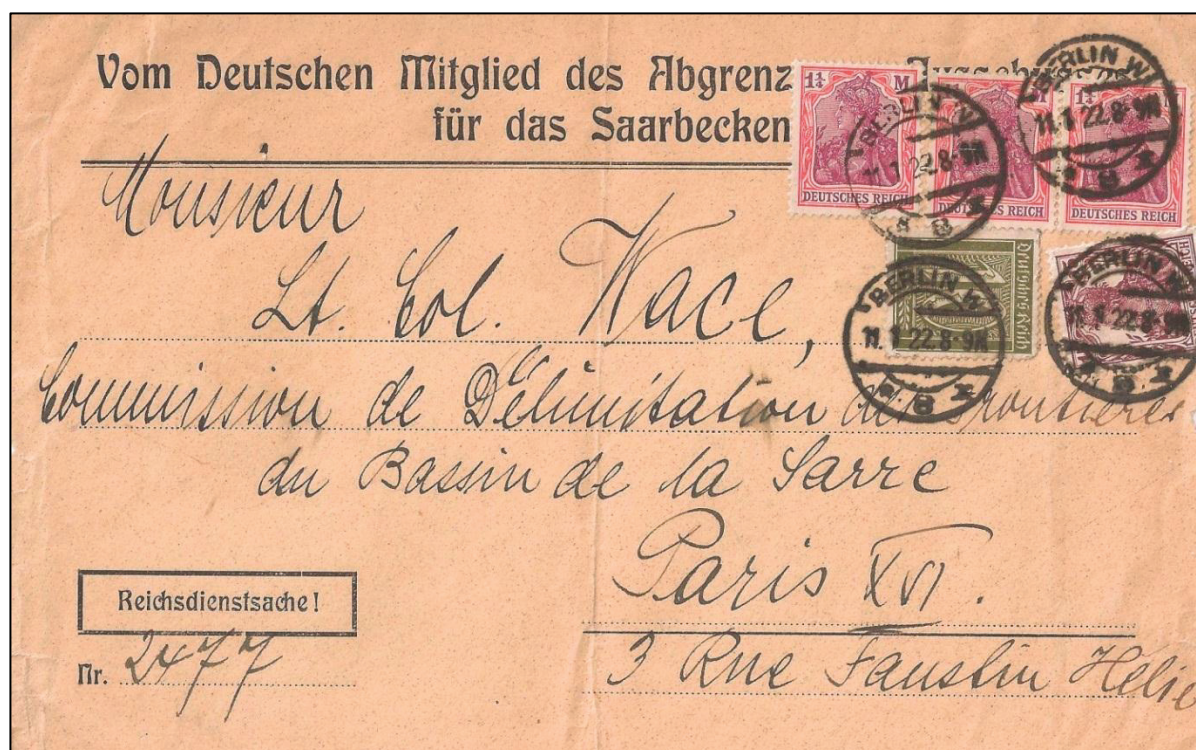 Vom Deutschen Mitglied des Abgrenz
für das Saarbecken
1¼ M
1¼
DEUTSCHES REICH
DEUTSCHES REICH
DEUTSCHES REICH
BERLIN W
11.1.22.8-9N
* 8 *
BERLIN W
11.1.22.8-9N
* 8 *
Deutsches Reich
BERLIN W
11.1.22.8-9N
* 8 *
BERLIN W
11.1.22.8-9N
* 8 *
Monsieur
Lt. Col. Wace,
Commission de Délimitation des Frontières
du Bassin de la Sarre
Paris XVI.
3 Rue Faustin Hélie
Reichsdienstsache!
Nr. 2477